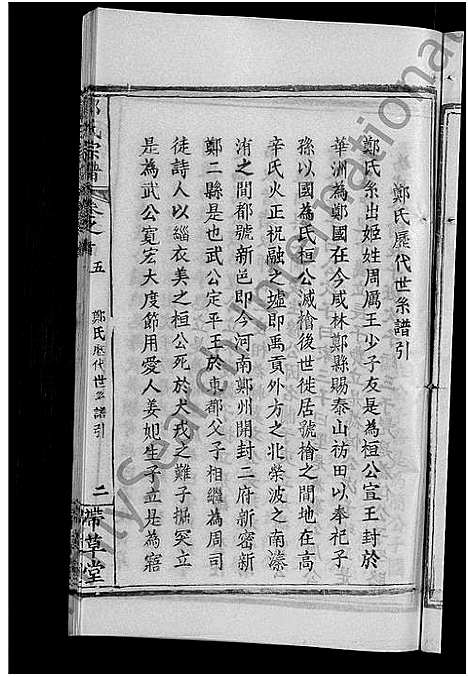 鄭氏歷代世系譜引
鄭氏系出姬姓周厲王少子友是為桓公宣王封於
華洲為鄭國在今咸林鄭縣賜泰山祊田以奉祀子
孫以國為氏桓公滅檜後世徙居號檜之間地在高
辛氏火正祝融之墟即禹貢外方之北滎波之南溱
洧之間都號新邑即今河南鄭州開封二府新密新
鄭二縣是也武公定平王於東都父子相繼為周司
徒詩人以緇衣美之桓公死於犬戎之難子掘突立
是為武公寬宏大度節用愛人姜妃生子立是為寤
氏宗譜
卷之首
五
鄭氏歷代世系譜引
二
帶草堂